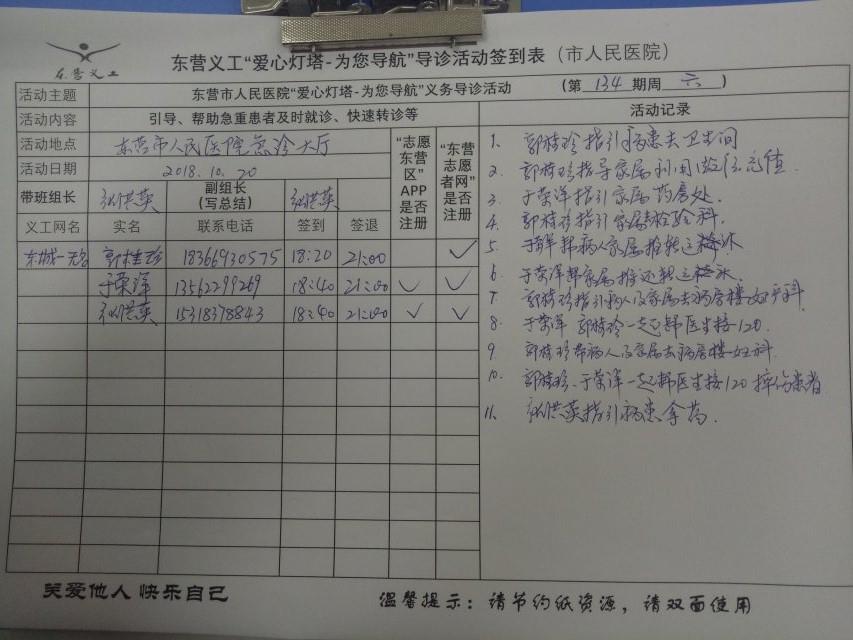 东营义工
东营义工“爱心灯塔-为您导航”导诊活动签到表（市人民医院）
活动主题 东营市人民医院“爱心灯塔-为您导航”义务导诊活动 （第 134 期周 六 ）
活动内容 引导、帮助急重患者及时就诊、快速转诊等
活动地点 东营市人民医院急诊大厅
活动日期 2018.10.20
“志愿东营区”APP是否注册
“东营志愿者网”是否注册
带班组长 洪英 副组长（写总结） 洪英
义工网名 实名 联系电话 签到 签退
东城一 郭桂珍 18366930575 18:20 21:00 ✓
于荣洋 13562299269 18:40 21:00 ✓ ✓
洪英 15318378843 18:40 21:00 ✓ ✓
活动记录
1. 郭桂珍指引病患去卫生间
2. 郭桂珍指导家属利用微信充值.
3. 于荣洋指引家属药房处.
4. 郭桂珍指引家属检验科.
5. 于荣洋帮病人家属推转运床
6. 于荣洋帮家属推还转运床.
7. 郭桂珍指引病人及家属去病房楼妇产科.
8. 于荣洋 郭桂珍一起帮医生接120.
9. 郭桂珍带病人及家属去病房楼妇科.
10. 郭桂珍、于荣洋一起帮医生接120摔伤患者
11. 洪英指引病患拿药.
关爱他人 快乐自己
温馨提示：请节约纸资源，请双面使用